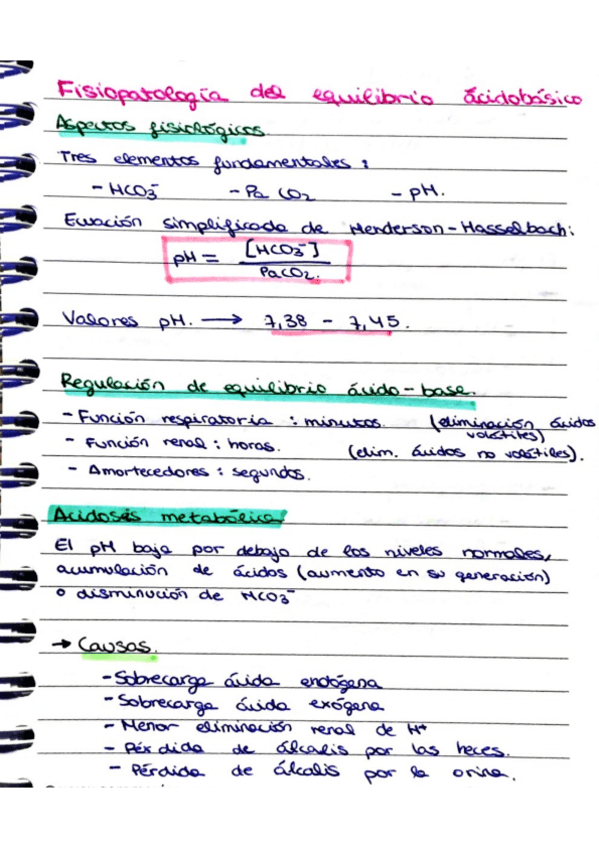 Fisiopatología del equilibrio ácidobásico
Aspectos fisiológicos
Tres elementos fundamentales:
- HCO3⁻ - Pa CO2 - pH.
Ecuación simplificada de Henderson-Hasselbach:
pH = [HCO3⁻] / PaCO2.
Valores pH. → 7,38 - 7,45.
Regulación de equilibrio ácido-base.
- Función respiratoria : minutos. (eliminación ácidos volátiles)
- Función renal : horas. (elim. ácidos no volátiles).
- Amortecedores : segundos.
Acidosis metabólica
El pH baja por debajo de los niveles normales,
acumulación de ácidos (aumento en su generación)
o disminución de HCO3⁻
→ Causas.
- Sobrecarga ácida endógena
- Sobrecarga ácida exógena
- Menor eliminación renal de H⁺
- Pérdida de álcalis por las heces.
- Pérdida de álcalis por la orina.